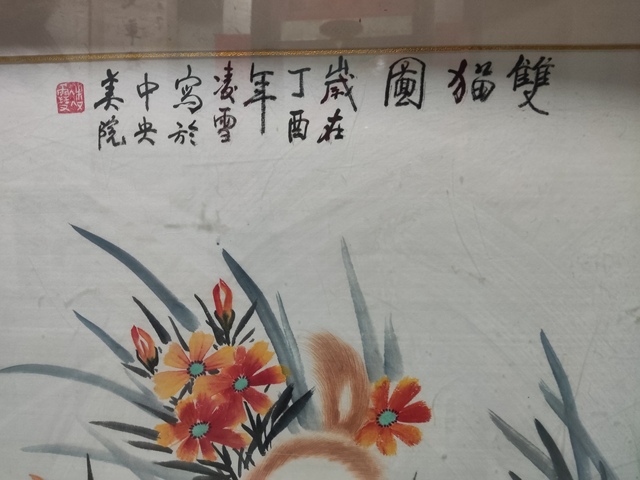 雙貓圖
歲在
丁酉
年
凌雪
寫於
中央
美院